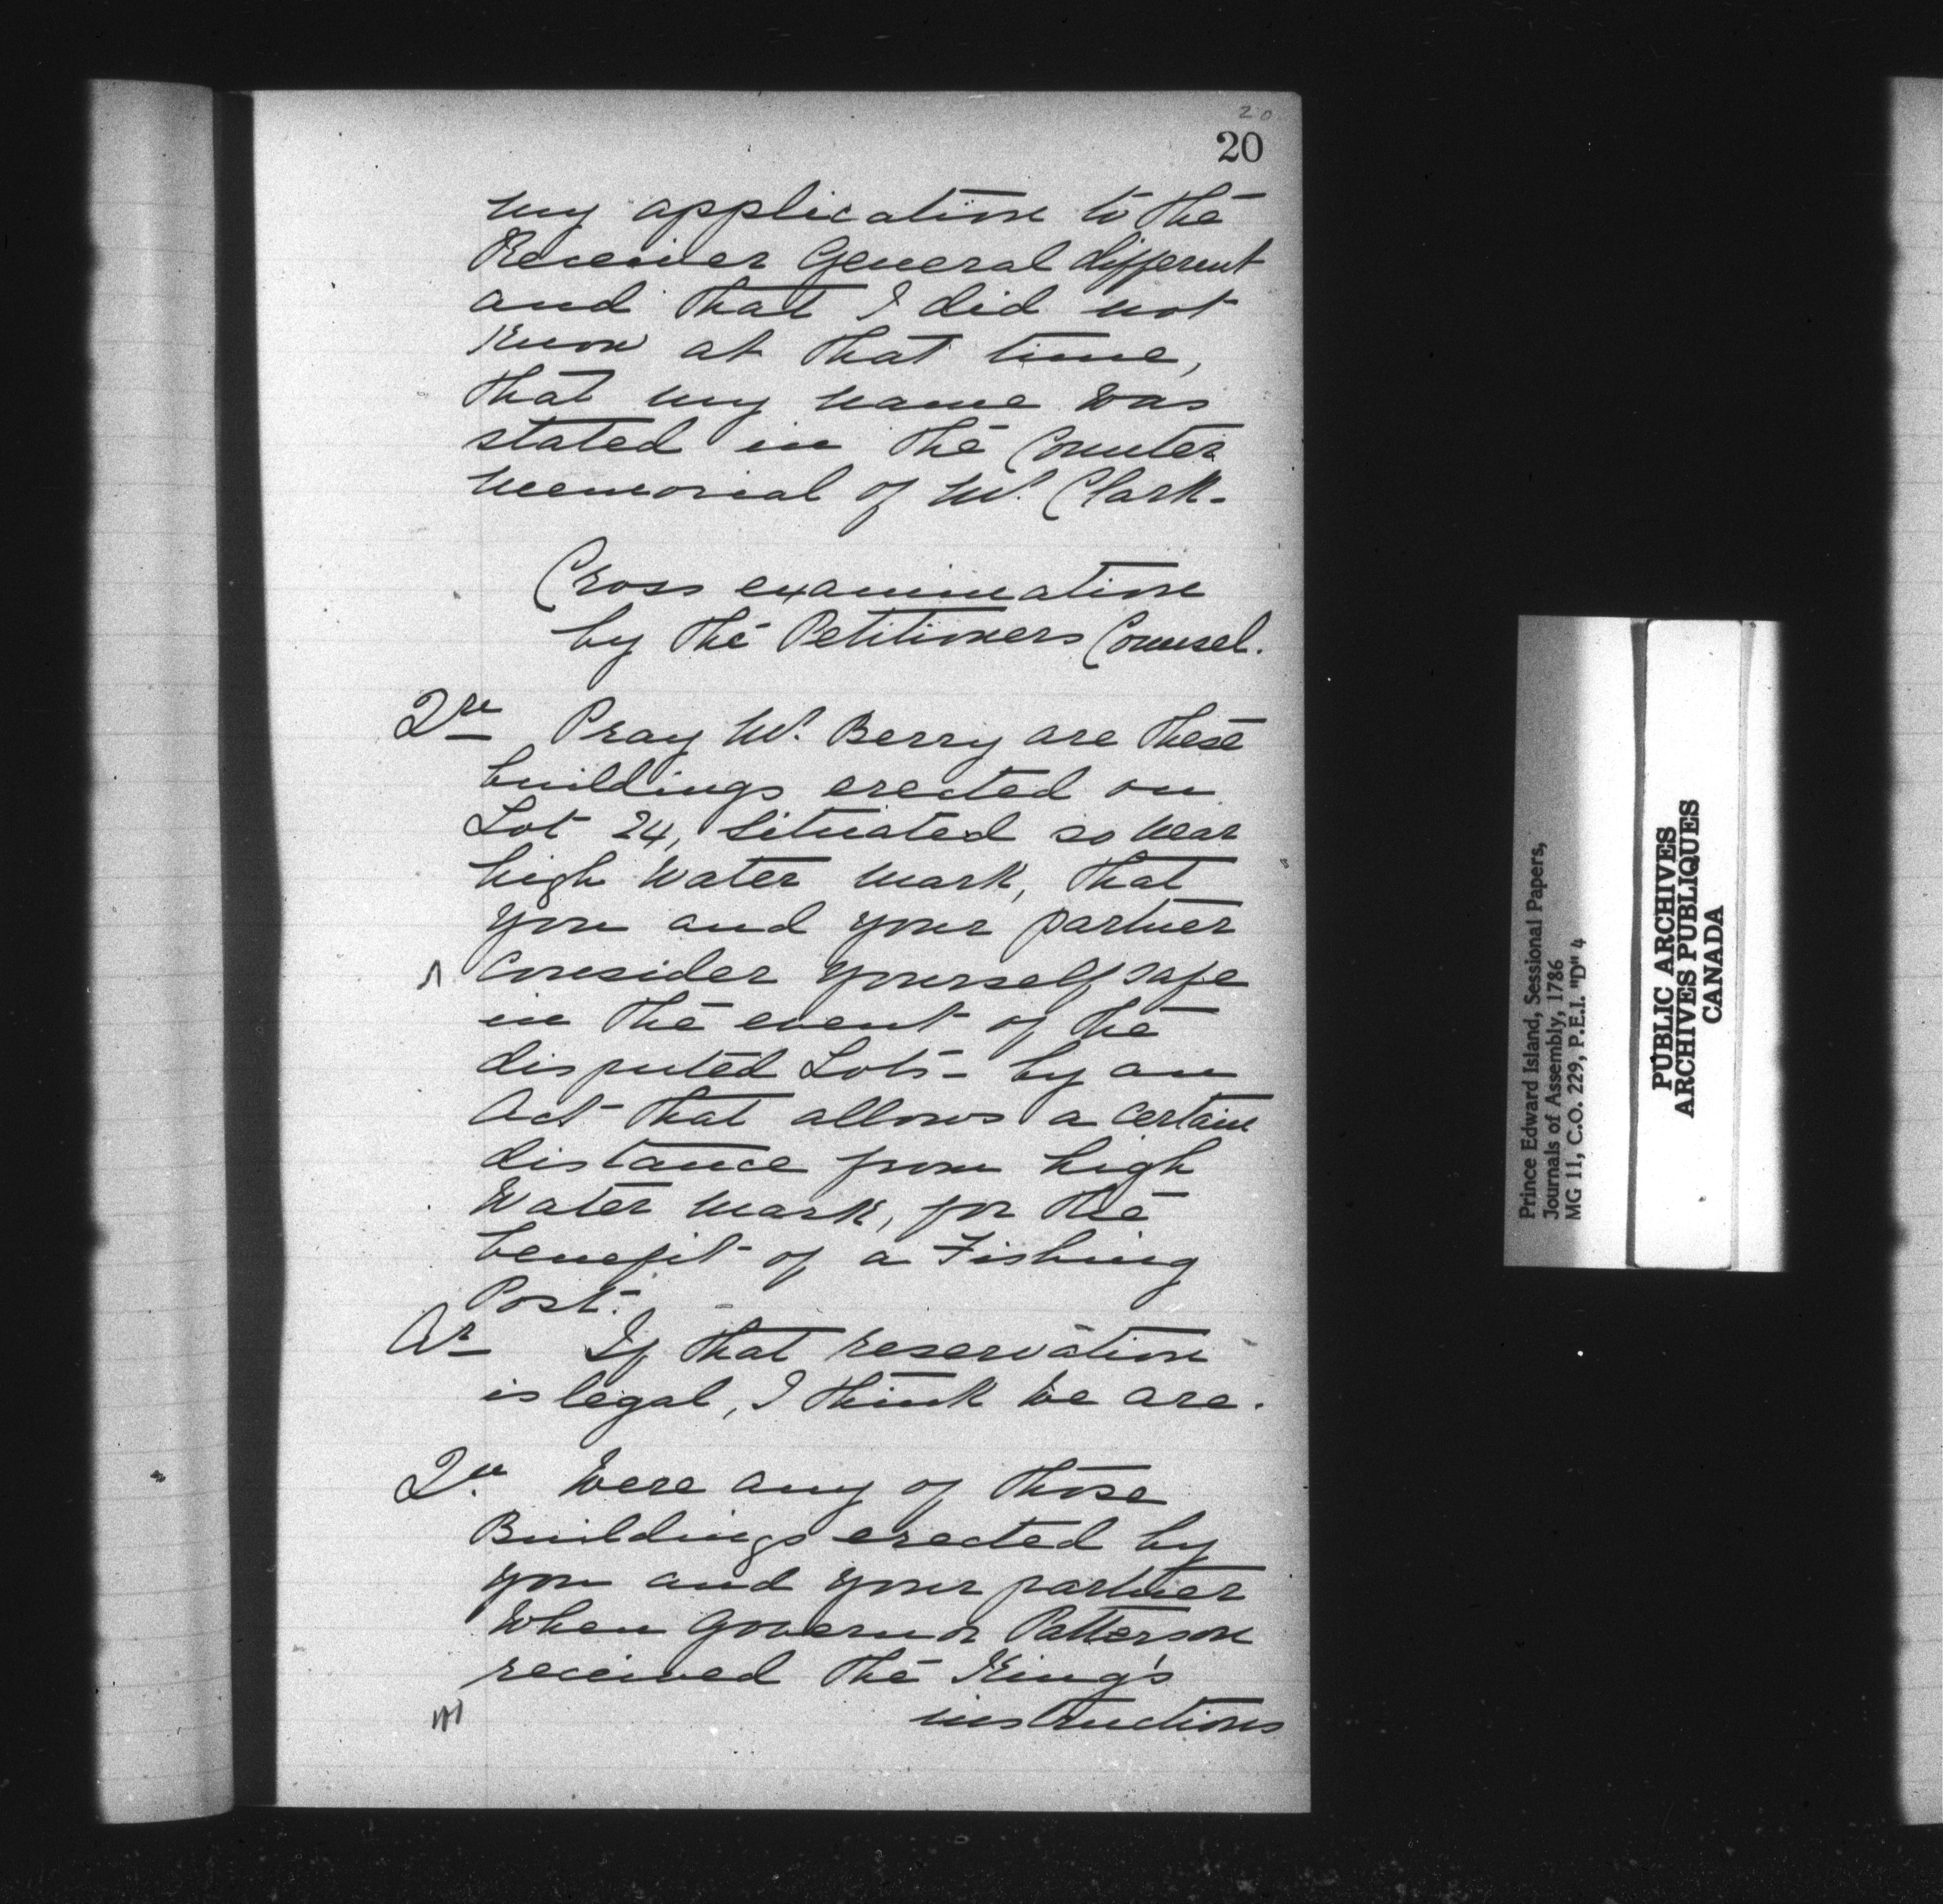 20
20
my application to the
Receiver General different
and that I did not
know at that time,
that my name was
stated in the Counter
memorial of Mr. Clark-
Cross examination
by the Petitioners Counsel.
Qre Pray Mr. Berry are these
buildings erected on
Lot 24, situated so near
high water mark, that
you and your partner
consider yourself safe
in the event of the
disputed Lots - by an
Act that allows a certain
distance from high
water mark, for the
benefit of a Fishing
Post.
Ar If that reservation
is legal, I think we are.
Qu. Were any of those
Buildings erected by
you and your partner
when Governor Patterson
received the King's
instructions
Prince Edward Island, Sessional Papers,
Journals of Assembly, 1786
MG 11, C.O. 229, P.E.I. "D" 4
PUBLIC ARCHIVES
ARCHIVES PUBLIQUES
CANADA